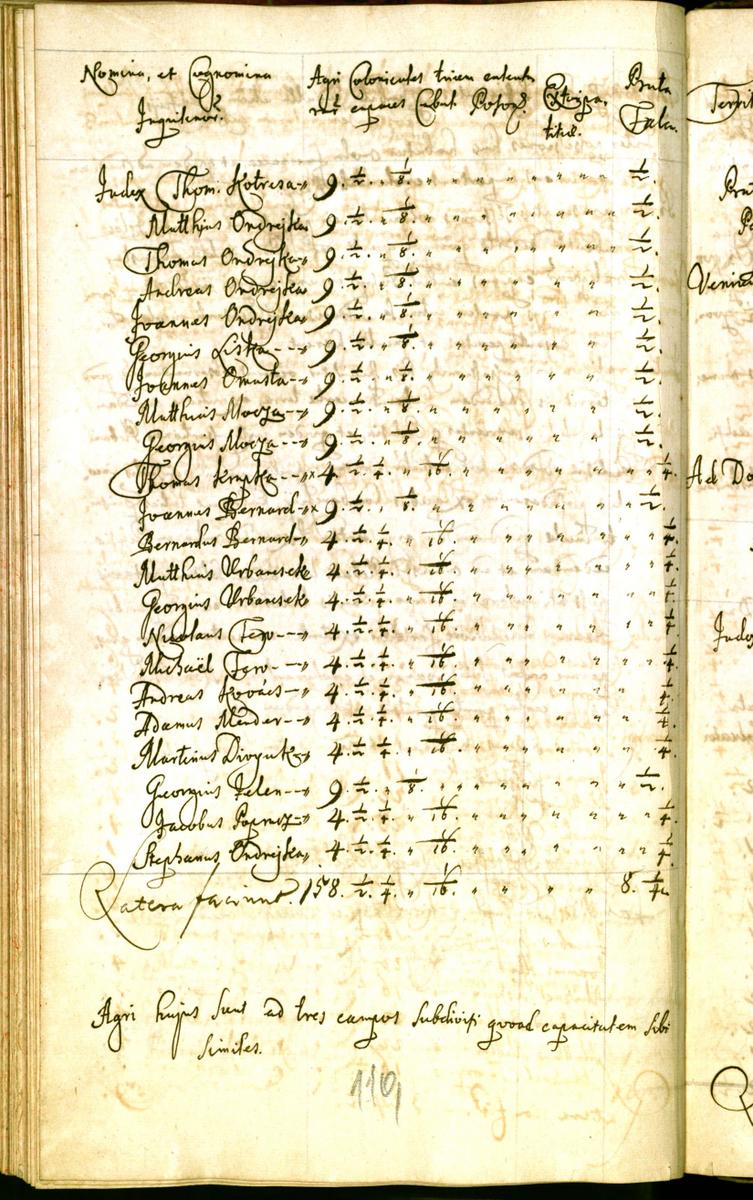 Nomina, et Cognomina Inquilinor.
Agri Coloniales trium
capaces Cubul. Poson.
Extirpa
titia.
Prata
Falca.
Judex Thom. Kotresa 9. 1/2. " 1/8. " " " " " " 1/2.
Matthias Ondrejka 9. 1/2. " 1/8. " " " " " " 1/2.
Thomas Ondrejka 9. 1/2. " 1/8. " " " " " " 1/2.
Andreas Ondrejka 9. 1/2. " 1/8. " " " " " " 1/2.
Joannes Ondrejka 9. 1/2. " 1/8. " " " " " " 1/2.
Georgius Liska 9. 1/2. " 1/8. " " " " " " 1/2.
Joannes Omasta 9. 1/2. " 1/8. " " " " " " 1/2.
Matthias Mocza 9. 1/2. " 1/8. " " " " " " 1/2.
Georgius Mocza 9. 1/2. " 1/8. " " " " " " 1/2.
Thomas Krupka x 4. 1/2. 1/4. " 1/16. " " " " " " 1/4.
Joannes Bernard x 9. 1/2. " 1/8. " " " " " " 1/2.
Bernardus Bernard 4. 1/2. 1/4. " 1/16. " " " " " " 1/4.
Matthias Urbancsek 4. 1/2. 1/4. " 1/16. " " " " " " 1/4.
Georgius Urbancsek 4. 1/2. 1/4. " 1/16. " " " " " " 1/4.
Nicolaus Fero 4. 1/2. 1/4. " 1/16. " " " " " " 1/4.
Michaël Fero 4. 1/2. 1/4. " 1/16. " " " " " " 1/4.
Andreas Kovács 4. 1/2. 1/4. " 1/16. " " " " " 1/4.
Adamus Minder 4. 1/2. 1/4. " 1/16. " " " " " 1/4.
Martinus 4. 1/2. 1/4. " 1/16. " " " " " 1/4.
Georgius Zelen 9. 1/2. " 1/8. " " " " " " 1/2.
Jacobus 4. 1/2. 1/4. " 1/16. " " " " " 1/4.
Stephanus Ondrejka 4. 1/2. 1/4. " 1/16. " " " " " " 1/4.
Latera faciunt. 158. 1/2. 1/4. " 1/16. " " " " 8. 1/4
Agri hujus sunt ad tres campos subdivisi qvoad capacitatem sibi
similes.
119